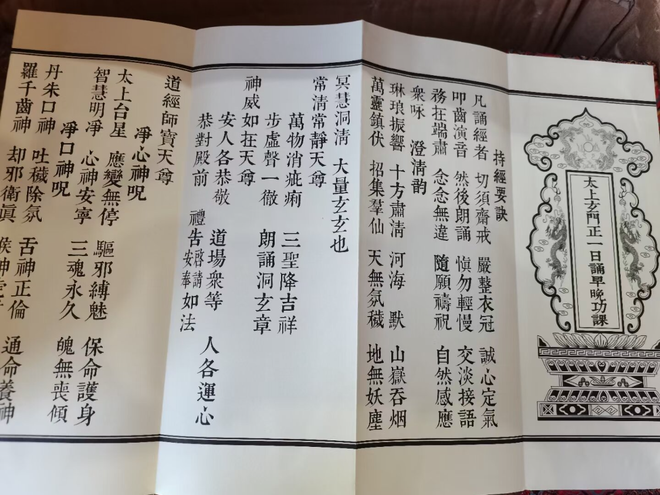 太上玄門正一日誦早晚功課
持經要訣
凡誦經者 切須齋戒 嚴整衣冠 誠心定氣
叩齒演音 然後朗誦 慎勿輕慢 交淡接語
務在端肅 念念無違 隨願禱祝 自然感應
衆咏 澄清韵
琳琅振響 十方肅清 河海 默 山嶽吞烟
萬靈鎮伏 招集羣仙 天無氛穢 地無妖塵
冥慧洞清 大量玄玄也
常清常靜天尊
萬物消疵痾 三聖降吉祥
步虛聲一徹 朗誦洞玄章
神威如在天尊
安人各恭敬 道場衆等 人各運心
恭對殿前 禮告 請 安奉 如法
道經師寶天尊
淨心神呪
太上台星 應變無停 驅邪縛魅 保命護身
智慧明淨 心神安寧 三魂永久 魄無喪傾
淨口神呪
丹朱口神 吐穢除氛 舌神正倫 通命養神
羅千齒神 却邪衛眞 喉神